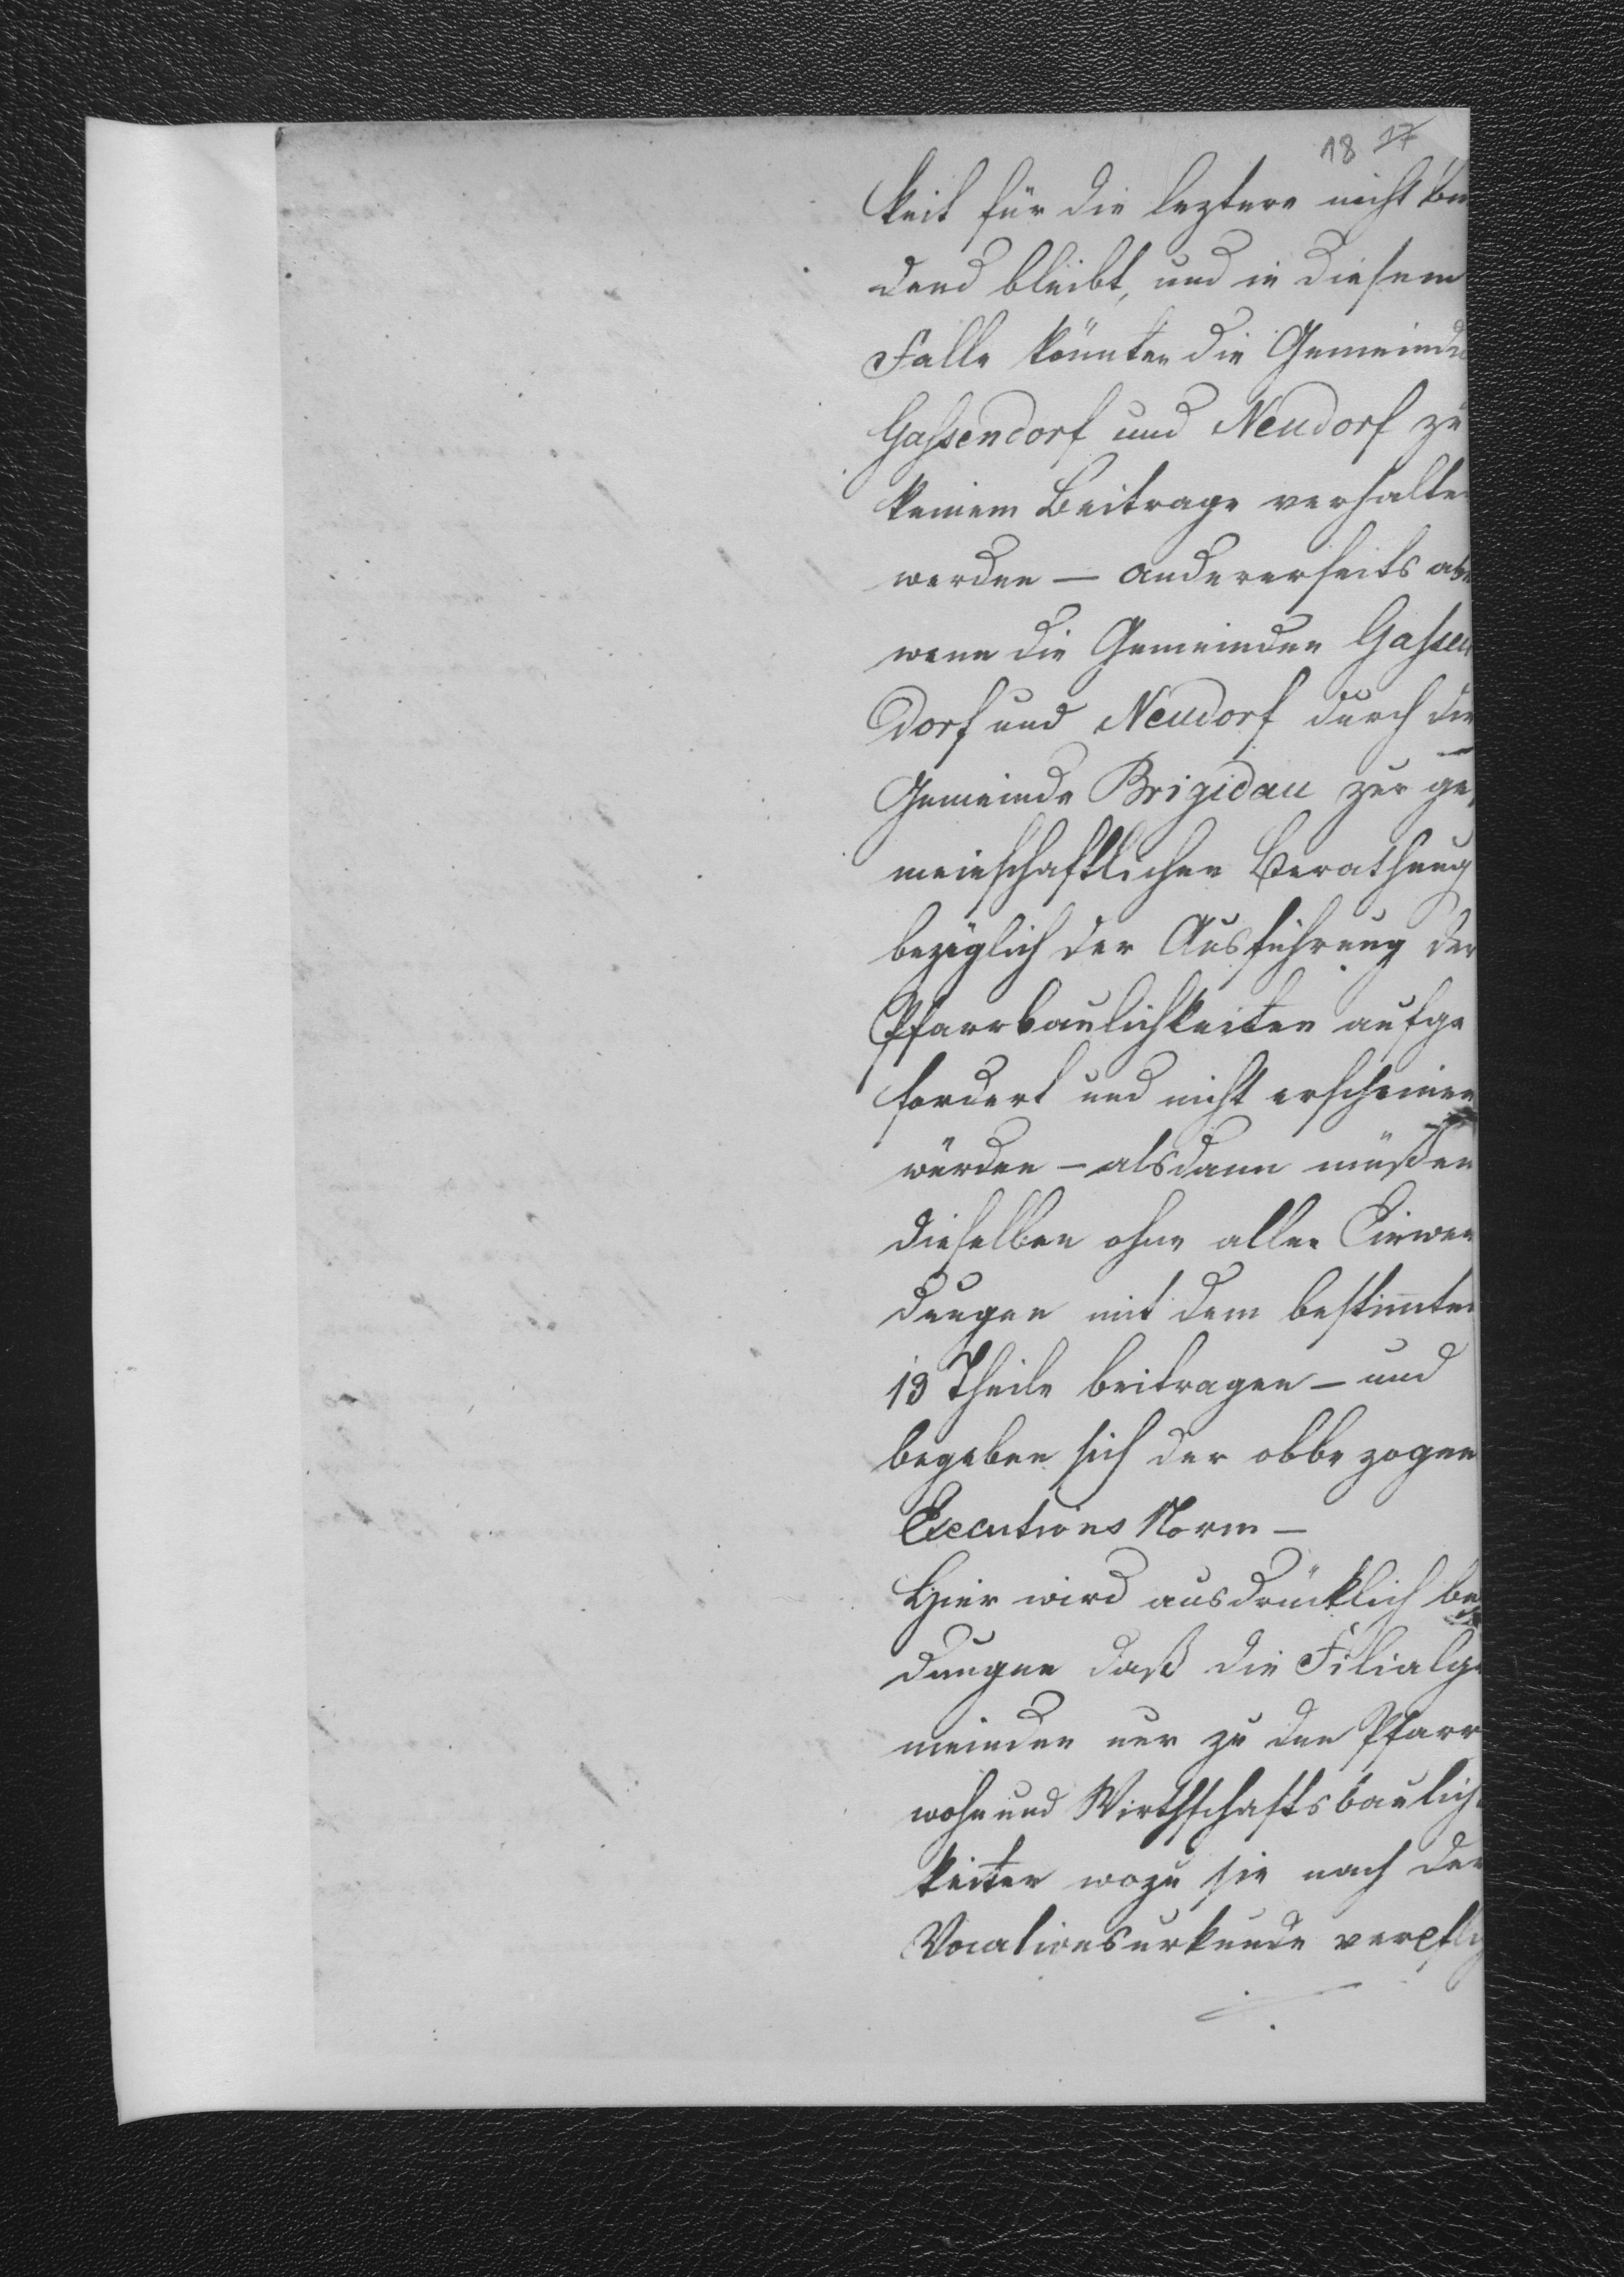 18 17
keit für die leztere nicht bin
dend bleibt, und in diesem
Falle könnten die Gemeinde
Gaßendorf und Neudorf zu
keinem Beitrage verhalten
werden – andererseits abe
wenn die Gemeinden Gaßen
dorf und Neudorf durch die
Gemeinde Brigidau zur ge
meinschaftlichen Berathung
bezüglich der Ausführung der
Pfarrbaulichkeiten aufge
fordert und nicht erscheinen
würden – alsdann müßen
dieselben ohne allen Einwen
dungen mit dem bestimten
13 Theile beitragen – und
begeben sich der obbezogene
Executions Norm –
Hier wird ausdrücklich be
dungen daß die Filialge
meinden nur zu den Pfarr
wohn und Wirthschaftsbaulich
keiten wozu sie nach der
Vocationsurkunde verpflig